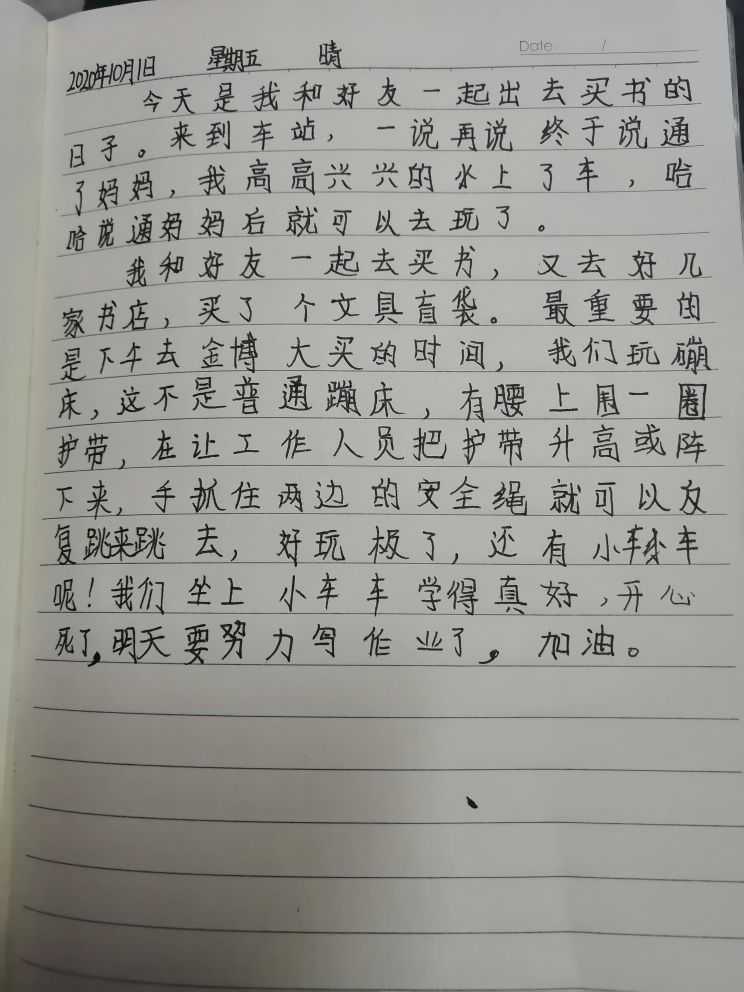 Date: /
2020年10月1日 星期五 晴
今天是我和好友一起出去买书的
日子。来到车站，一说再说 终于说通
了妈妈，我高高兴兴的坐上了车，哈
哈说通妈妈后就可以去玩了。
我和好友一起去买书，又去好几
家书店，买了个文具盲袋。最重要的
是下午去金博大买的时间，我们玩蹦
床，这不是普通蹦床，有腰上围一圈
护带，在让工作人员把护带升高或阵
下来，手抓住两边的安全绳就可以反
复跳来跳去，好玩极了，还有小车车
呢！我们坐上小车车学得真好，开心
死了，明天要努力写作业了，加油。